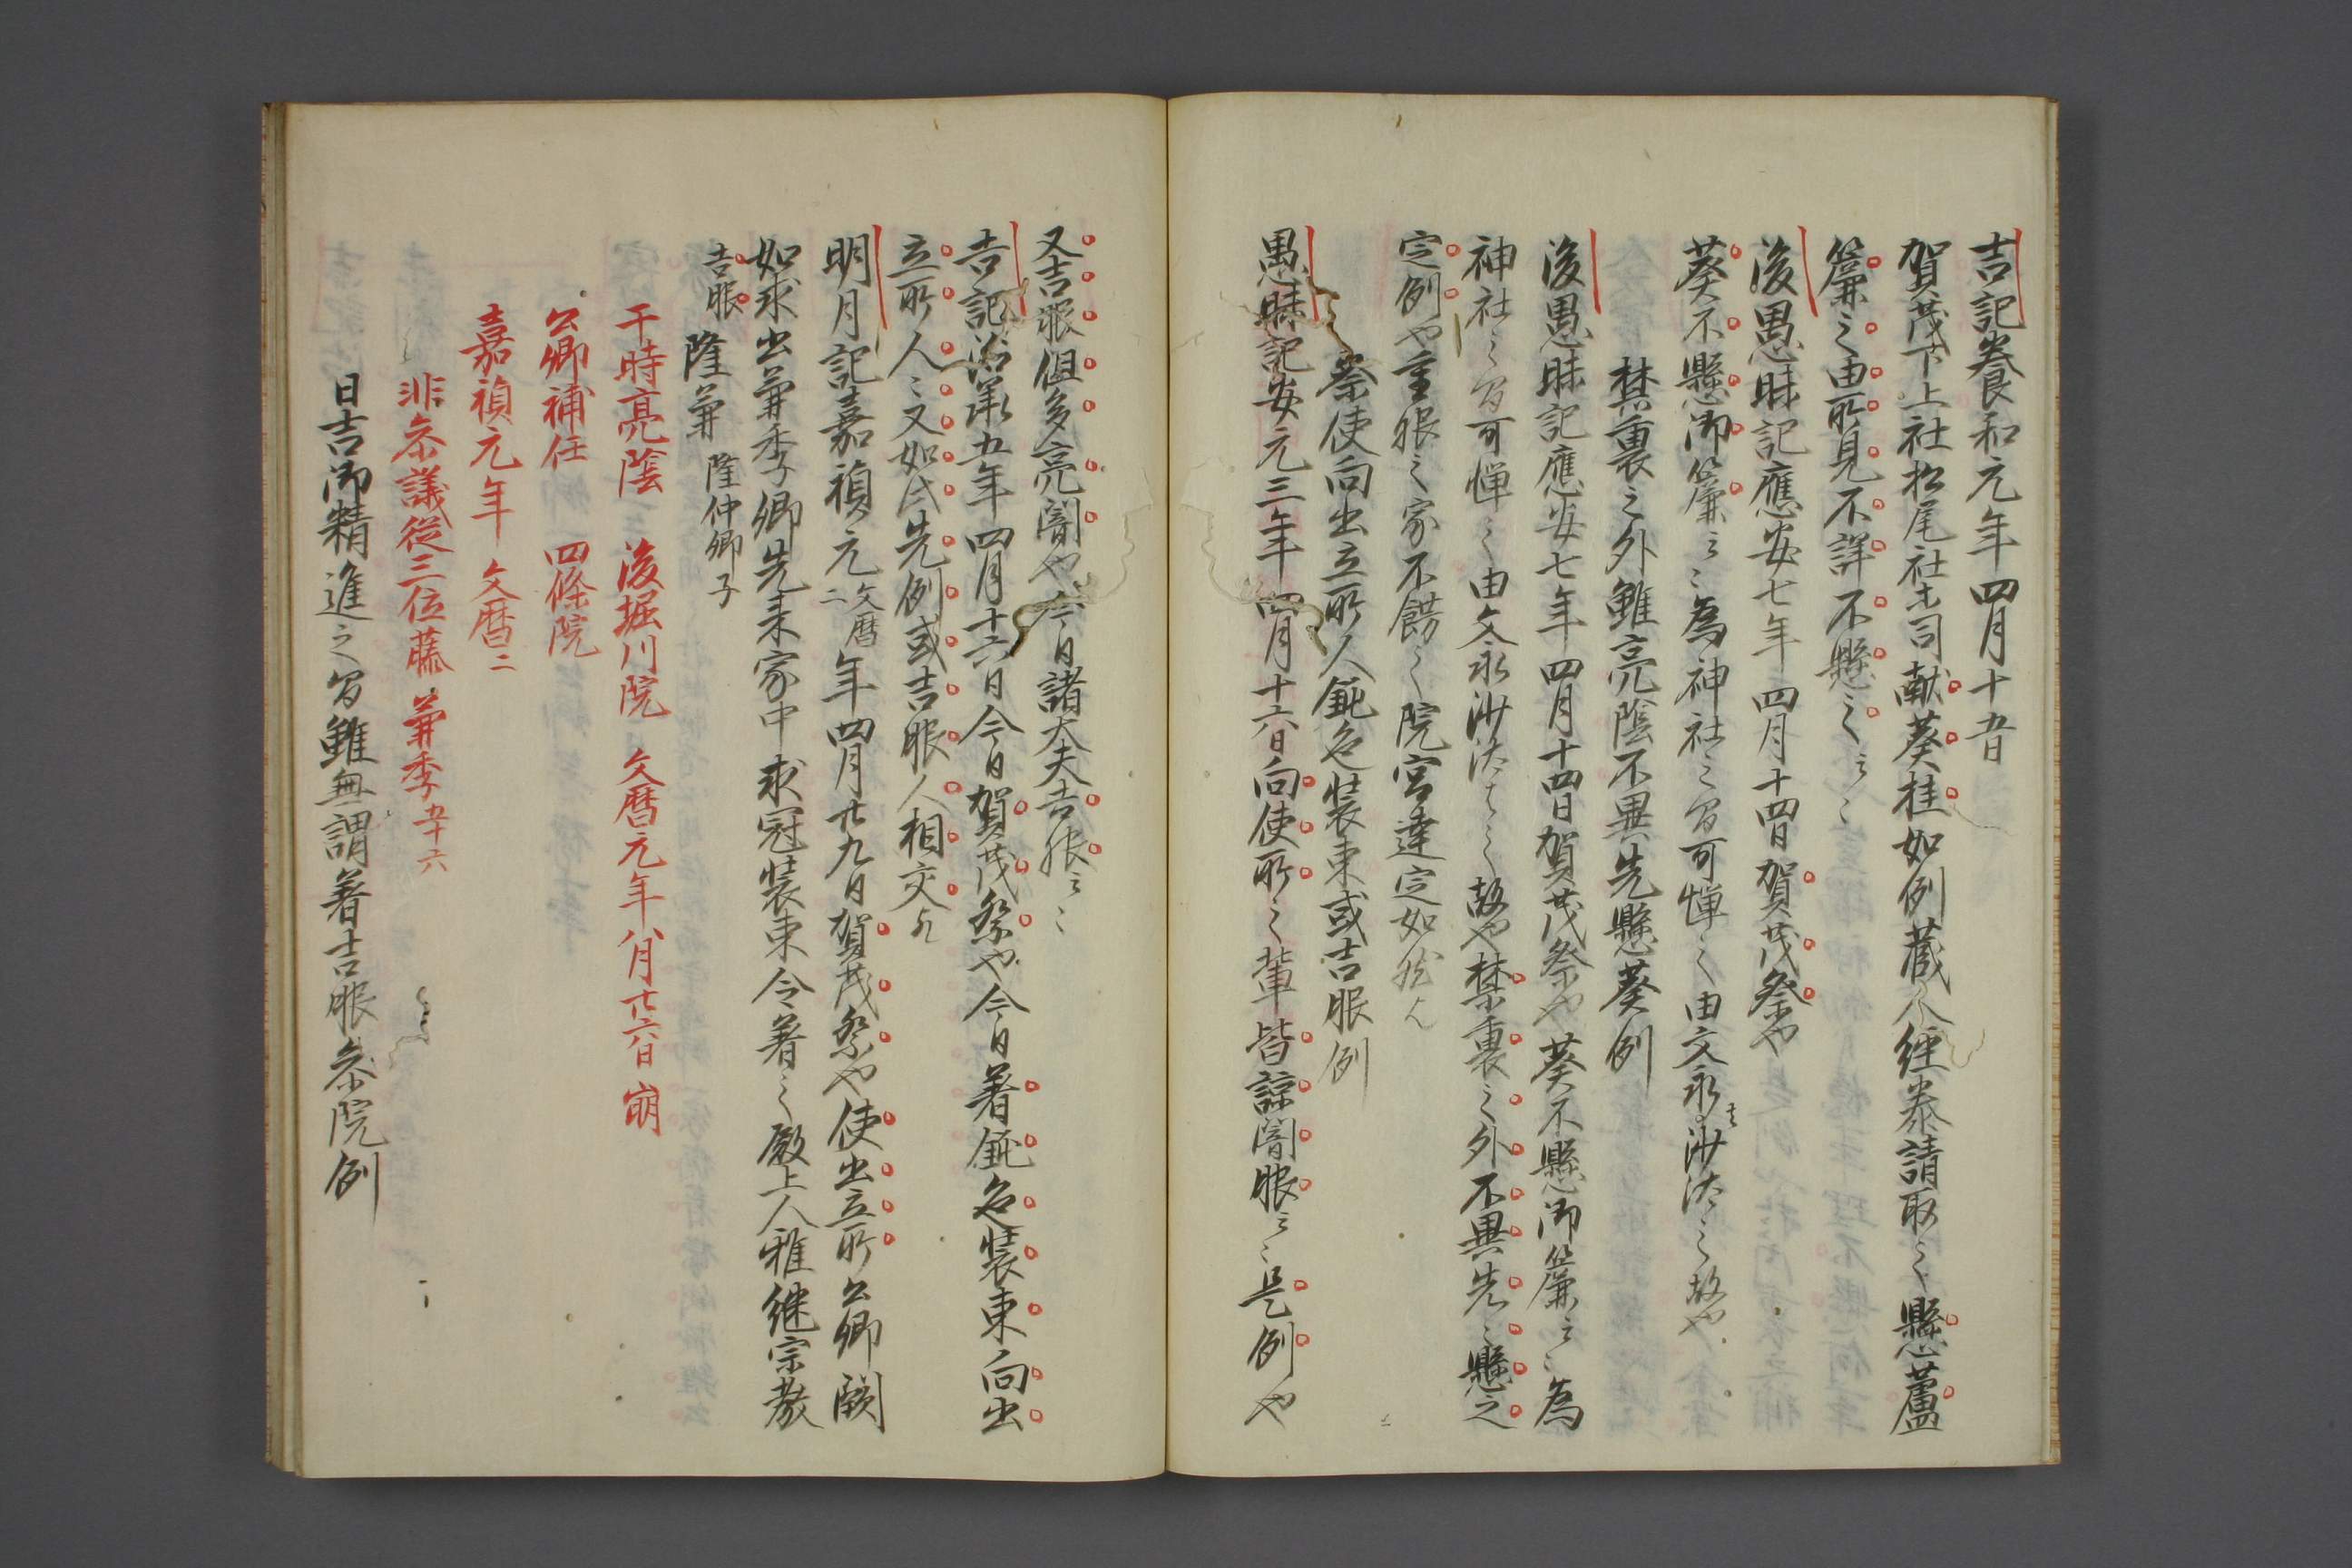 吉記養和元年四月十五日
賀茂下上社松尾社社司献葵桂如例蔵人経泰請取之懸蘆
簾之由所見不詳不懸之云々
後愚昧記應安七年四月十四日賀茂祭也
葵不懸御簾云々為神社之間可憚之由文永沙汰之故也
禁裏之外雖亮陰不異先懸葵例
後愚昧記應安七年四月十四日賀茂祭也葵不懸御簾云々為
神社之間可憚之由文永沙汰之故也禁裏之外不異先々懸之
定例也重服之家不餝之院宮達定如然歟
祭使向出立所人鈍色装束或吉服例
愚昧記安元三年四月十六日向使所之輩皆諒闇服云々是例也
又吉服但多亮闇也今日諸大夫吉服云々
吉記治承五年四月十六日今日賀茂祭也今日着鈍色装束向出
立所人々又如此先例或吉服人相交歟
明月記嘉禎元文暦二年四月廿九日賀茂祭也使出立所公卿闕
如求出兼季卿先来家中求冠装束令着之殿上人雅継宗教
吉服隆兼隆仲卿子
干時亮陰 後堀川院 文暦元年八月廿六日崩
公卿補任 四條院
嘉禎元年 文暦二
非参議従三位藤兼季五十六
日吉御精進之間雖無謂着吉服参院例